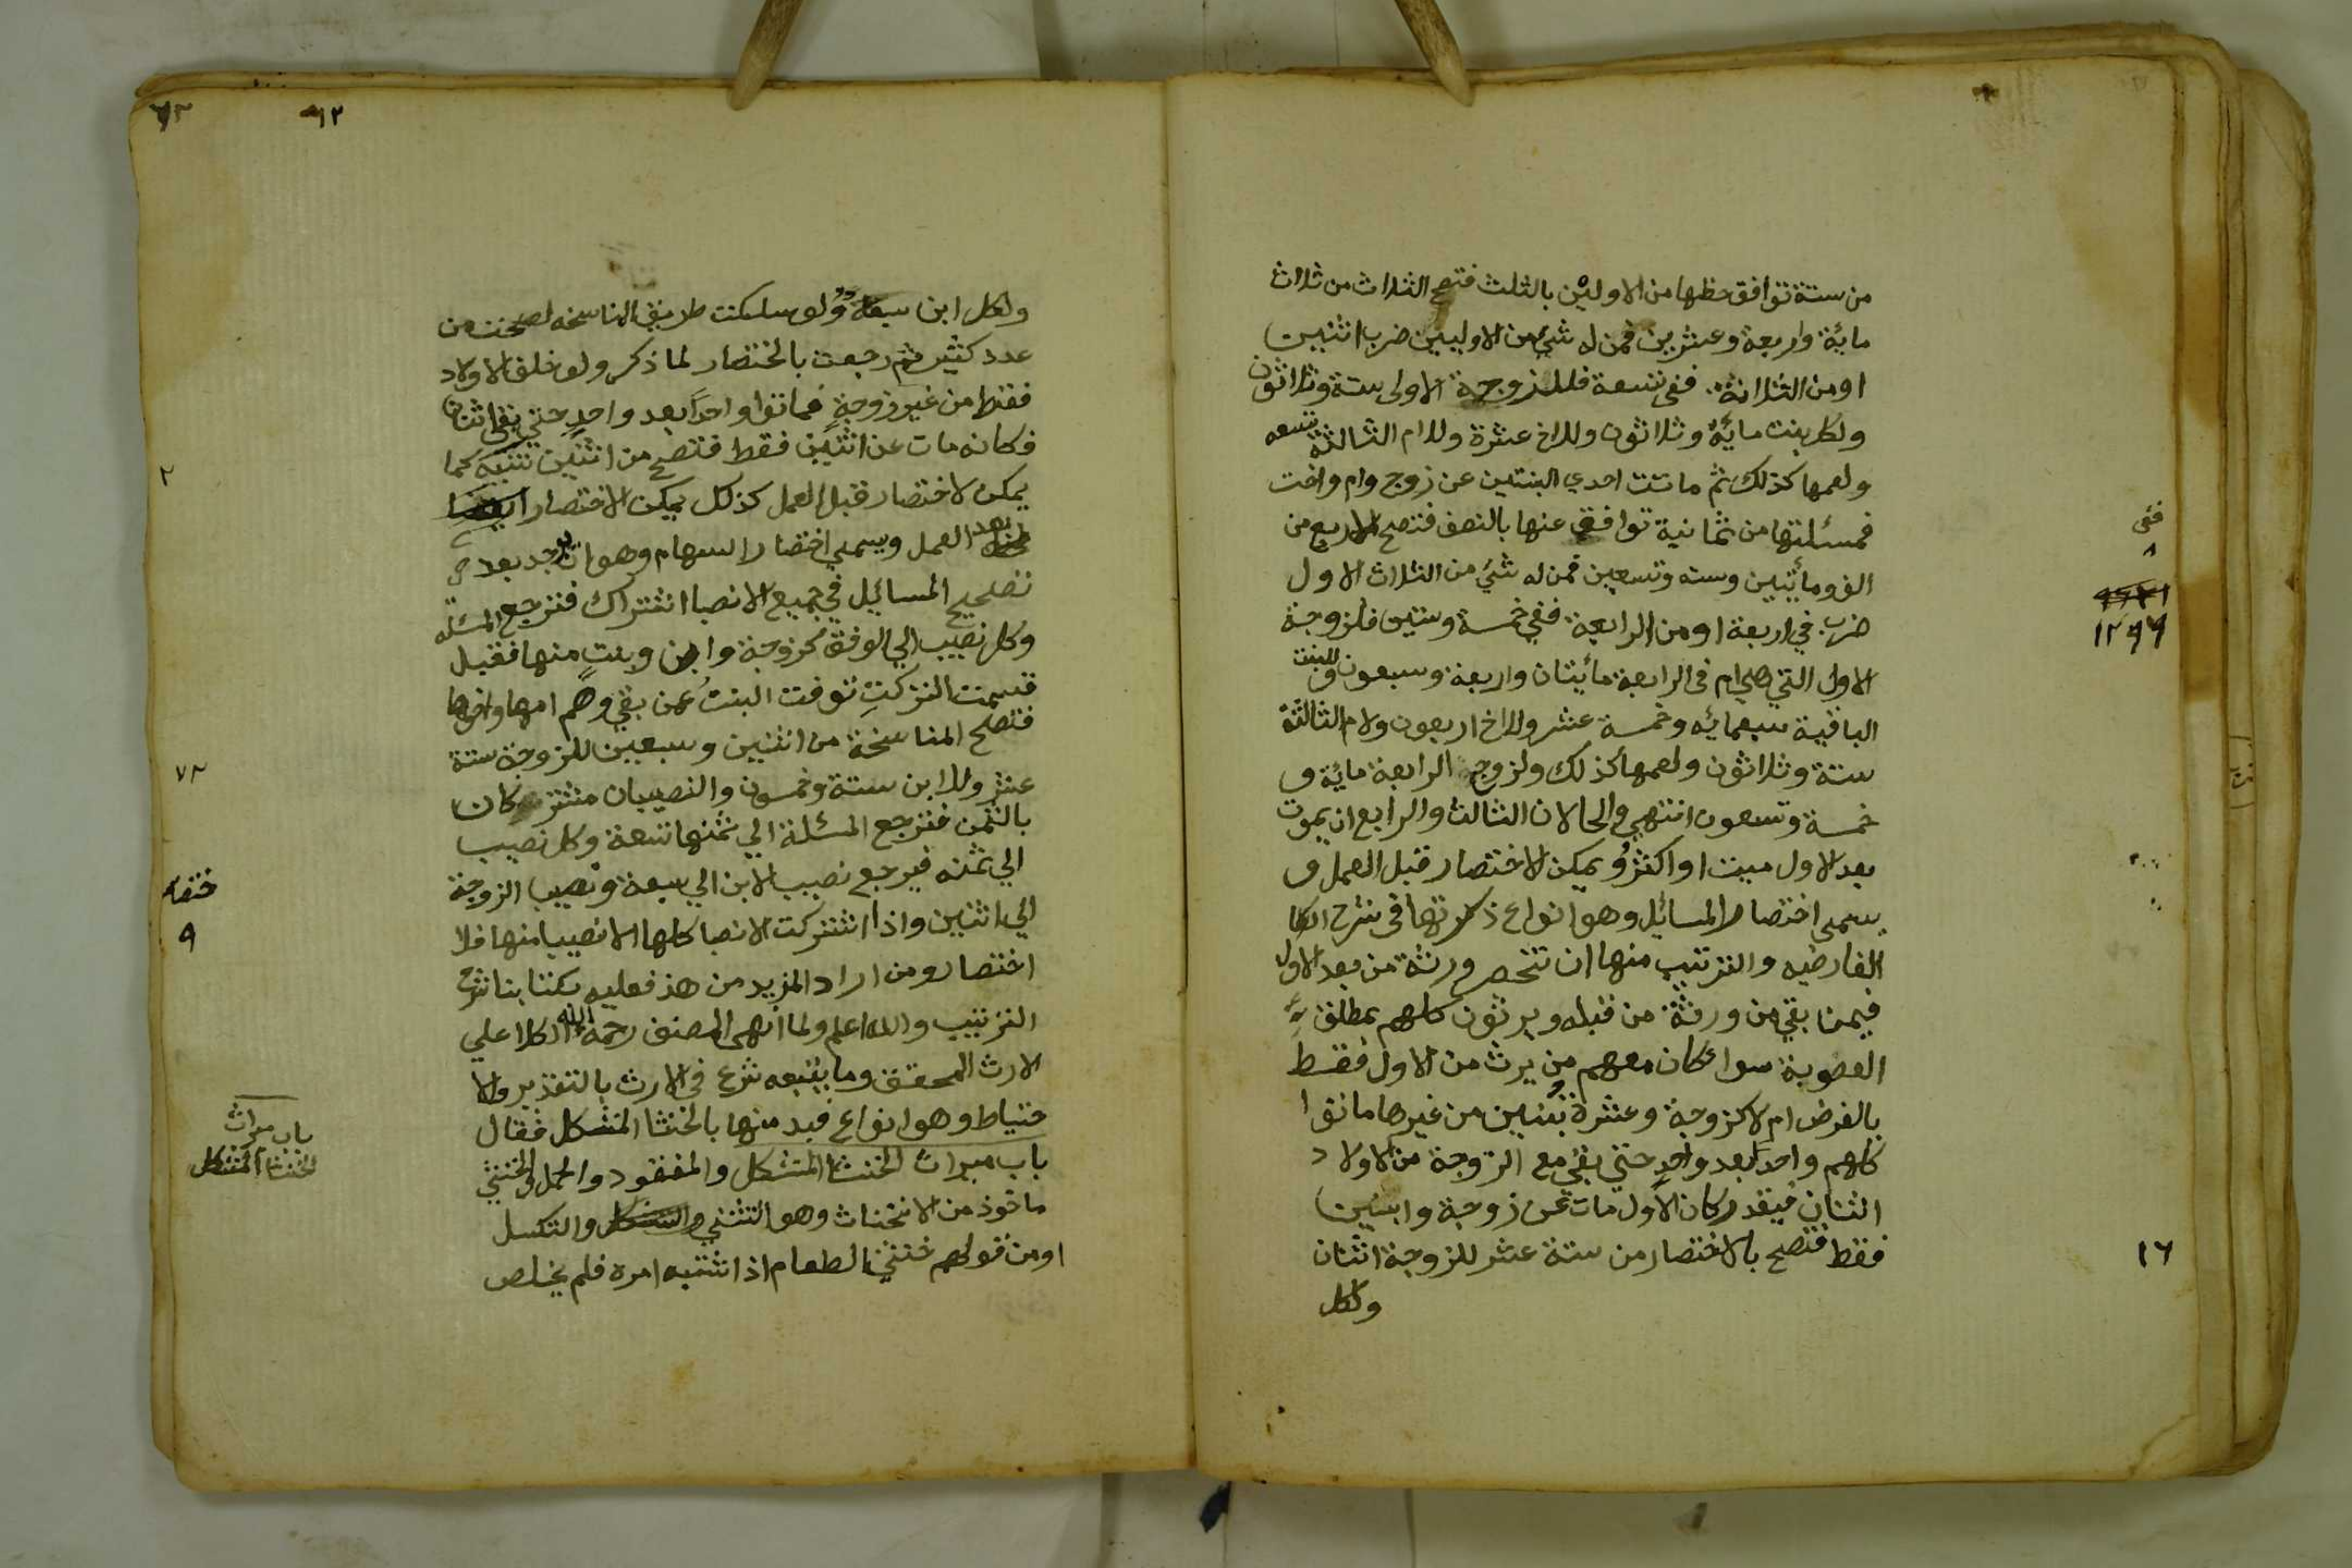 من ستة توافق حظها من الاوليين بالثلث فتصح الثلاث من ثلاث
ماية واربعة وعشرين فمن له شيء من الاوليين ضرب اثنين
او من الثلاثة ففي تسعة فللزوجة الاولى ستة وثلاثون
ولكل بنت مايه وثلاثون وللاخ عشرة وللام الثالثة تسعه
ولعمها كذلك ثم ماتت احدي البنتين عن زوج وام واخت
فمسئلتها من ثمانية توافق عنها بالنصف فتصح الاربع من
الف ومأتيين وسته وتسعين فمن له شئ من الثلاث الاول
ضرب في اربعة او من الرابعة ففي خمسة وستين فلزوجة
الاول التي هي ام في الرابعة مأيتان واربعة وسبعون وللبنت
الباقية سبعمايه وخمسة عشر وللاخ اربعون ولام الثالثة
ستة وثلاثون ولعمها كذلك ولزوج الرابعة ماية و
خمسة وتسعون انتهي والحالان الثالث والرابع ان يموت
بعد الاول ميت او اكثر ويمكن الاختصار قبل العمل و
يسمى اختصار المسائيل وهو انواع ذكرتها في شرح الكا
الفارضيه والترتيب منها ان تنحصر ورثة من بعد الاول
فيمن بقي من ورثة من قبله ويرثون كلهم بمطلق
العصوبة سوا كان معهم من يرث من الاول فقط
بالفرض ام لا كزوجة وعشرة بنين من غيرها ماتوا
كلهم واحدا بعد واحد حتي بقي مع الزوجة من الاولاد
اثنان فيقدر كان الاول مات عن زوجة وابنين
فقط فتصح بالاختصار من ستة عشر للزوجة اثنان
ولكل
فئى
٨
١٢٩٦
١٦
٦٢
٩٢
ولكل ابن سبعة ولو سلكت طريق المناسخه لصحت من
عدد كثير ثم رجعت بالاختصار لما ذكر ولو خلف الاولاد
فقط من غير زوجة فماتوا واحدا بعد واحد حتي بقي اثنان
فكانه مات عن اثنين فقط فتصح من اثنين تنبيه كما
يمكن لاختصار قبل العمل كذلك يمكن الاختصار
بعد العمل ويسمى اختصار السهام وهو ان يوجد بعد
تصحيح المسائيل في جميع الانصبا اشتراك فترجع المسئله
وكل نصيب الي الوفق كزوجة وابن وبنت منها فقبل
قسمت التركت توفت البنت عمن بقي وهم امها واخوها
فتصح المناسخة من اثنين وسبعين للزوجة ستة
عشر وللابن ستة وخمسون والنصيبان مشتركان
بالثمن فترجع المسئلة الي ثمنها تسعة وكل نصيب
الي ثمنه فيرجع نصيب الابن الي سبعة ونصيب الزوجة
الي اثنين واذا اشتركت الانصبا كلها الا نصيبا منها فلا
اختصار ومن اراد المزيد من هذ فعليه بكتابنا شرح
الترتيب والله اعلم ولما انهى المصنف رحمه الله الكلا علي
الارث المحقق وما يتبعه شرع في الارث بالتقدير والا
حتياط وهو انواع فبد منها بالخنثا المشكل فقال
باب ميراث الخنثا المشكل والمفقود والحمل والخنثي
ماخوذ من الانخناث وهو التثني والتكسل
او من قولهم خنثى الطعام اذا اشتبه امره فلم يخلص
٢
٧٢
٩
باب ميراث
الخنثا المشكل